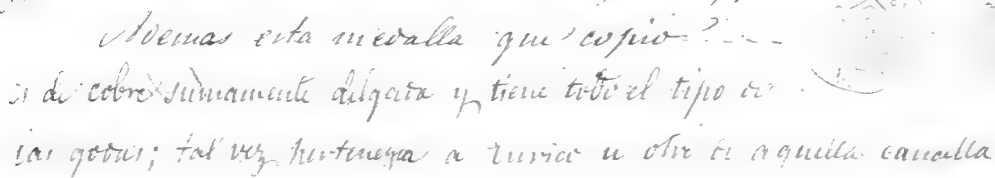 Ademas esta medalla que copio
es de cobre sumamente delgada y tiene todo el tipo de
las godas; tal vez pertenezca a u otro de aquella canalla